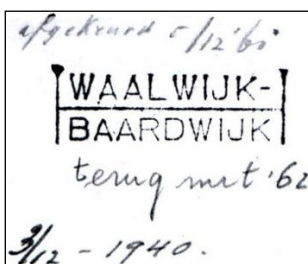 afgekeurd 5/12 '60
WAALWIJK-
BAARDWIJK
terug mrt '62
3/12 - 1940.